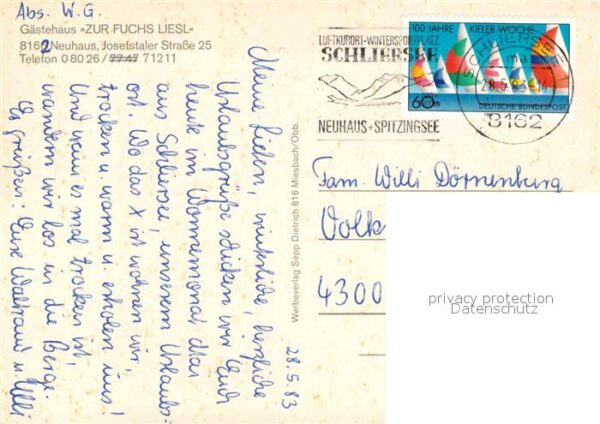 Abs. W. G.
Gästehaus »ZUR FUCHS LIESL«
8162 Neuhaus, Josefstaler Straße 25
Telefon 0 80 26 / 77 47 71211
Meine Lieben, herzliche
Urlaubsgrüße schicken wir Euch
heute im Wonnemonat Mai
aus Schliersee, unserem Urlaubs-
ort. Wo das X ist wohnen wir,
trocken u. warm u. erholen uns!
Und wenn es mal trocken ist,
wandern wir los in die Berge.
Es grüßen: Eure Waltraud u. Willi
28.5.83
Werbeverlag Sepp Dietrich 816 Miesbach/Obb.
LUFTKURORT-WINTERSPORTPLATZ
SCHLIERSEE
NEUHAUS+SPITZINGSEE
SCHLIERSEE 1
ma
28.5.83-14
8162
100 JAHRE KIELER WOCHE
60
DEUTSCHE BUNDESPOST
Fam. Willi Dörnenburg
Volk
4300
privacy protection
Datenschutz